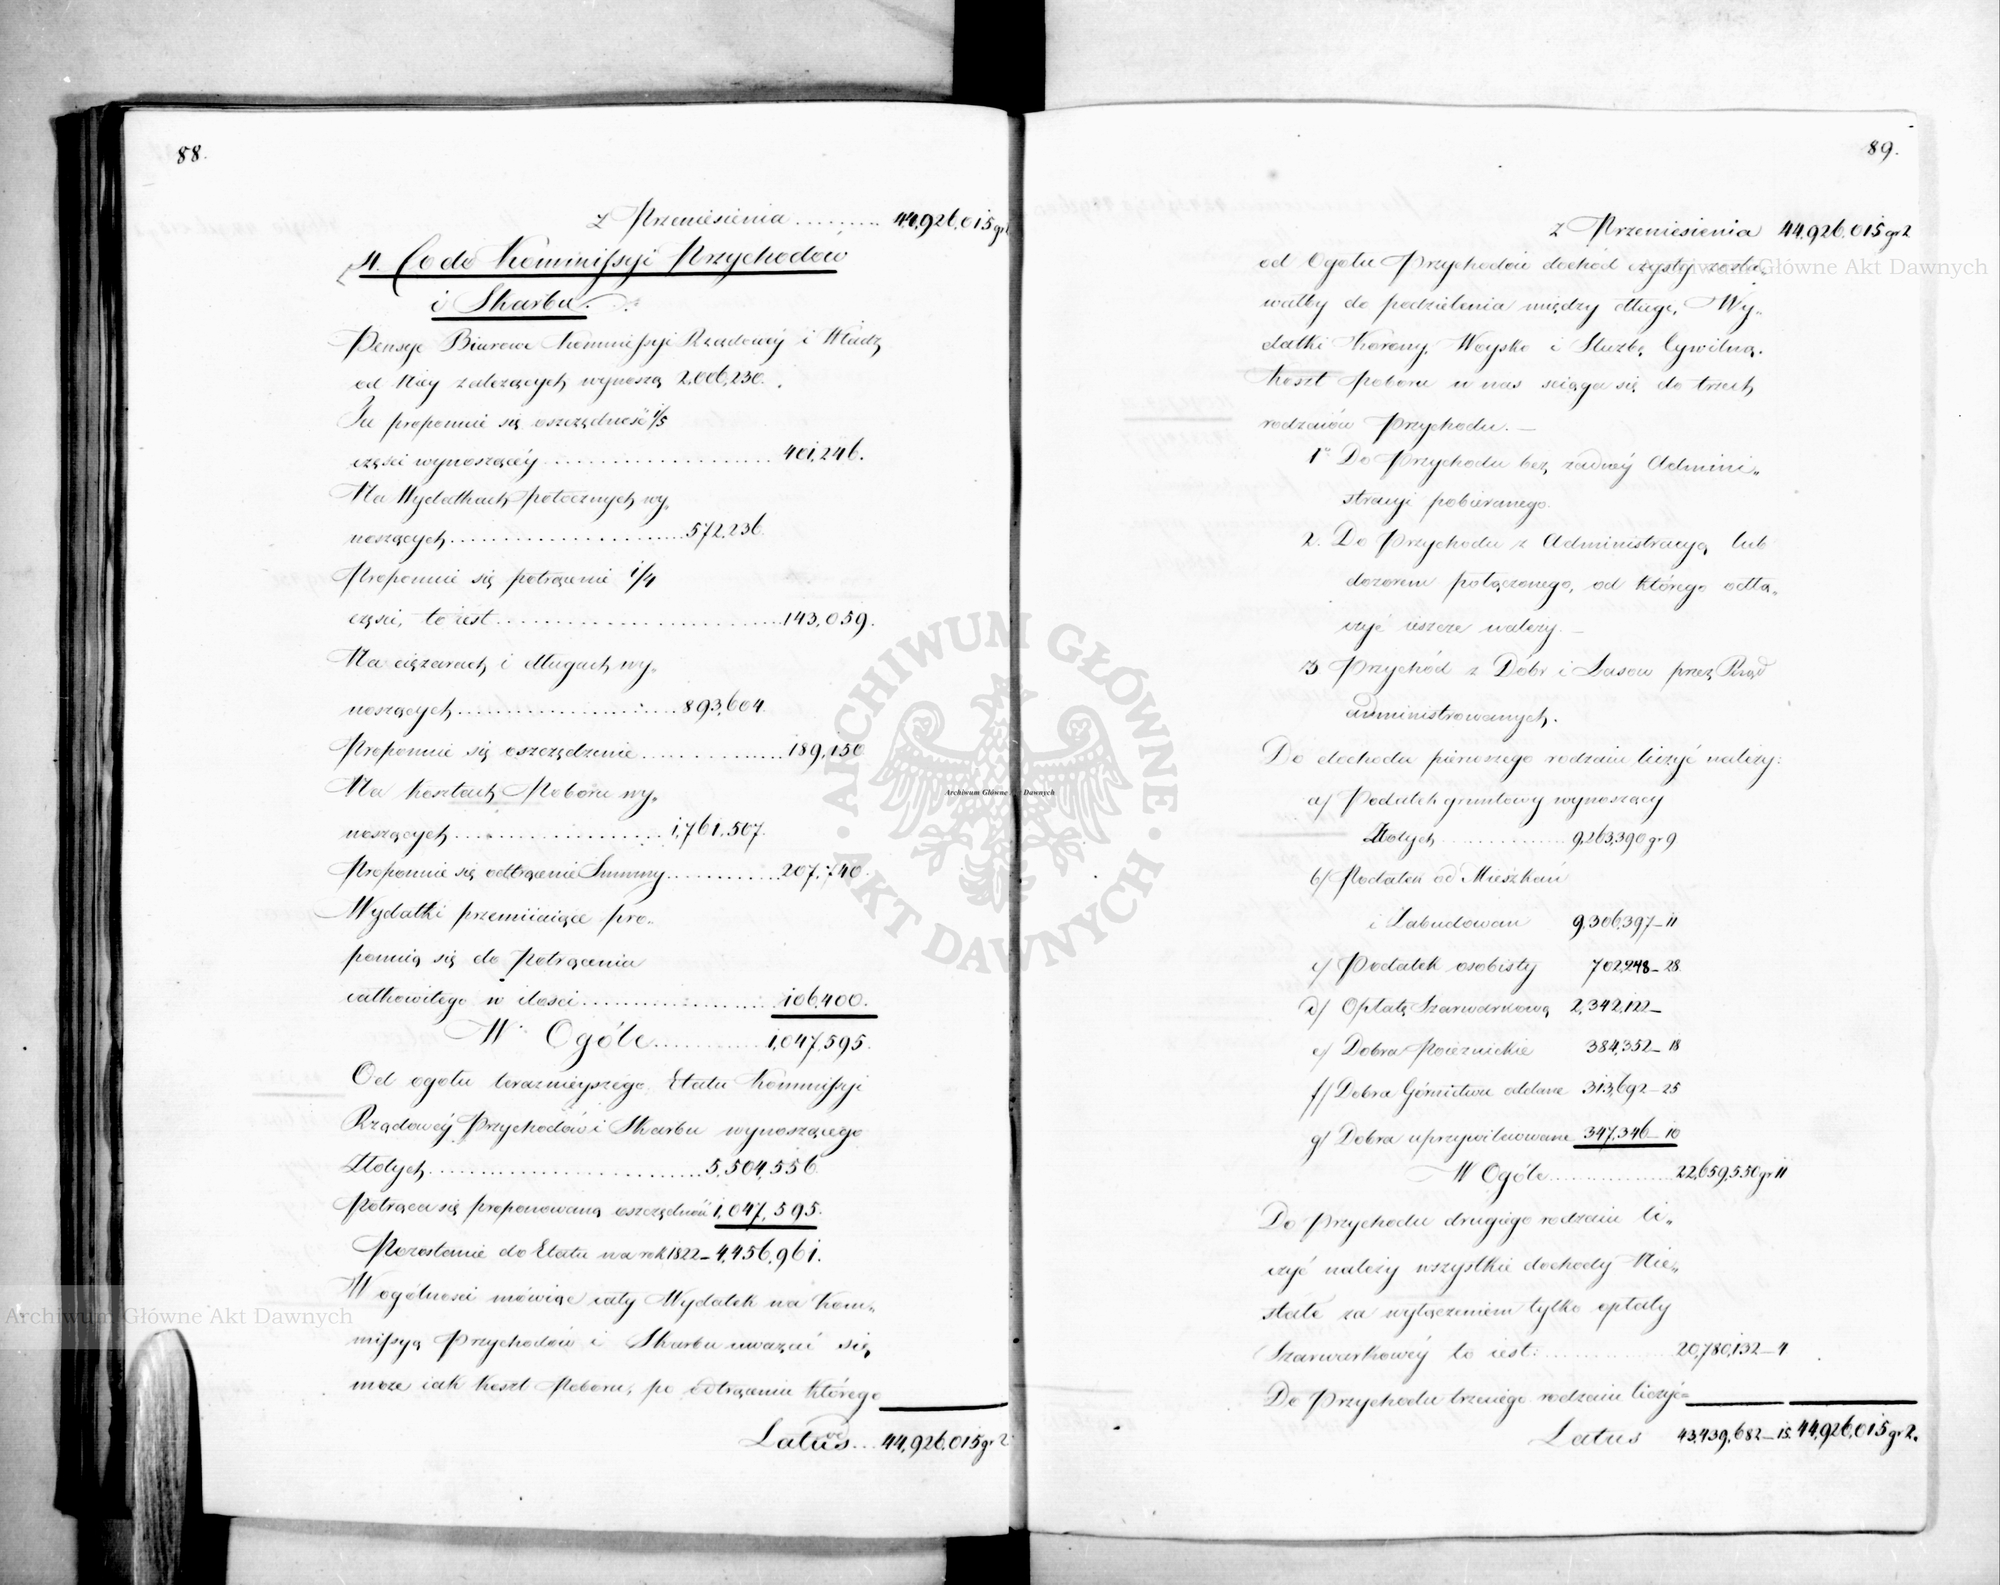 88.
z Przeniesienia .......... 44,926,015 gr 2
4. Co do Kommissyi Przychodow
i Skarbu.
Pensye Biurowe Kommissyi Rządowéy i Władz
od Niey zależących wynoszą 2,006,230.
Tu proponuie się oszczędność 1/5
części wynoszącéy .......... 401,246.
Na Wydatkach potocznych wy„
noszących .......... 572,236.
Proponuie się potrącenie 1/4
części, to iest .......... 143,059.
Na ciężarach i długach wy„
noszących .......... 893,604.
Proponuie się oszczędzenie .......... 189,150
Na kosztach Poboru wy„
noszących .......... 1,761,507.
Proponuie się odtrącenie Summy .......... 207,740.
Wydatki przemiiaiące pro„
ponuią się do Potrącenia
całkowitego w ilości .......... 106,400.
W Ogóle .......... 1,047,595.
Od ogołu teraznieyszego Etatu Kommissyi
Rządowéy Przychodów i Skarbu wynoszącego
Złotych .......... 5,504,556.
Potrąca się proponowaną oszczędność 1,047,595.
Pozostanie do Etatu na rok 1822 – 4,456,961.
W ogólności mówiąc cały Wydatek na Kom„
missyą Przychodów i Skarbu uważać się
może iak koszt Poboru, po odtrąceniu którego
Latus ... 44,926,015 gr 2
89.
z Przeniesienia 44,926,015 gr 2
od Ogołu Przychodów dochód czysty zosta„
wałby do podzielenia między długi, Wy„
datki Korony, Woysko i Służbę Cywilną.
Koszt Poboru u nas sciąga się do trzech
rodzaiów Przychodu. —
1° Do Przychodu bez żadnéy Admini„
stracyi pobieranego.
2. Do Przychodu z Administracyą lub
dozorem połączonego, od którego odłą„
czyć ieszcze należy. —
3 Przychód z Dóbr i Lasow przez Rząd
administrowanych.
Do dochodu pierwszego rodzaiu liczyć należy:
a/ Podatek gruntowy wynoszący
Złotych .......... 9,263,390 gr 9
b/ Podatek od Mieszkań
i Zabudowań 9,306,397 – 11
c/ Podatek osobisty 702,248 – 28.
d/ Opłatę Szarwarkową 2,342,122 –
e/ Dobra Poieznickie 384,352 – 18
f/ Dobra Górnictwu oddane 313,692 – 25
g/ Dobra uprzywileiowane 347,346 – 10
W Ogóle .......... 22,659,550 gr 11
Do Przychodu drugiego rodzaiu li„
czyć należy wszystkie dochody Nie„
stałe za wyłączeniem tylko opłaty
Szarwarkowéy to iest: .......... 20,780,132 – 4
Do Przychodu trzeciego rodzaiu liczyć=
Latus 43,439,682 – 15. 44,926,015 gr 2.
Archiwum Główne Akt Dawnych
Archiwum Główne Akt Dawnych
Archiwum Główne Akt Dawnych
ARCHIWUM GŁÓWNE · AKT DAWNYCH ·